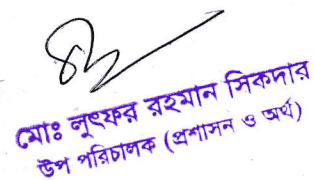 মোঃ লুৎফর রহমান সিকদার
উপ পরিচালক (প্রশাসন ও অর্থ)